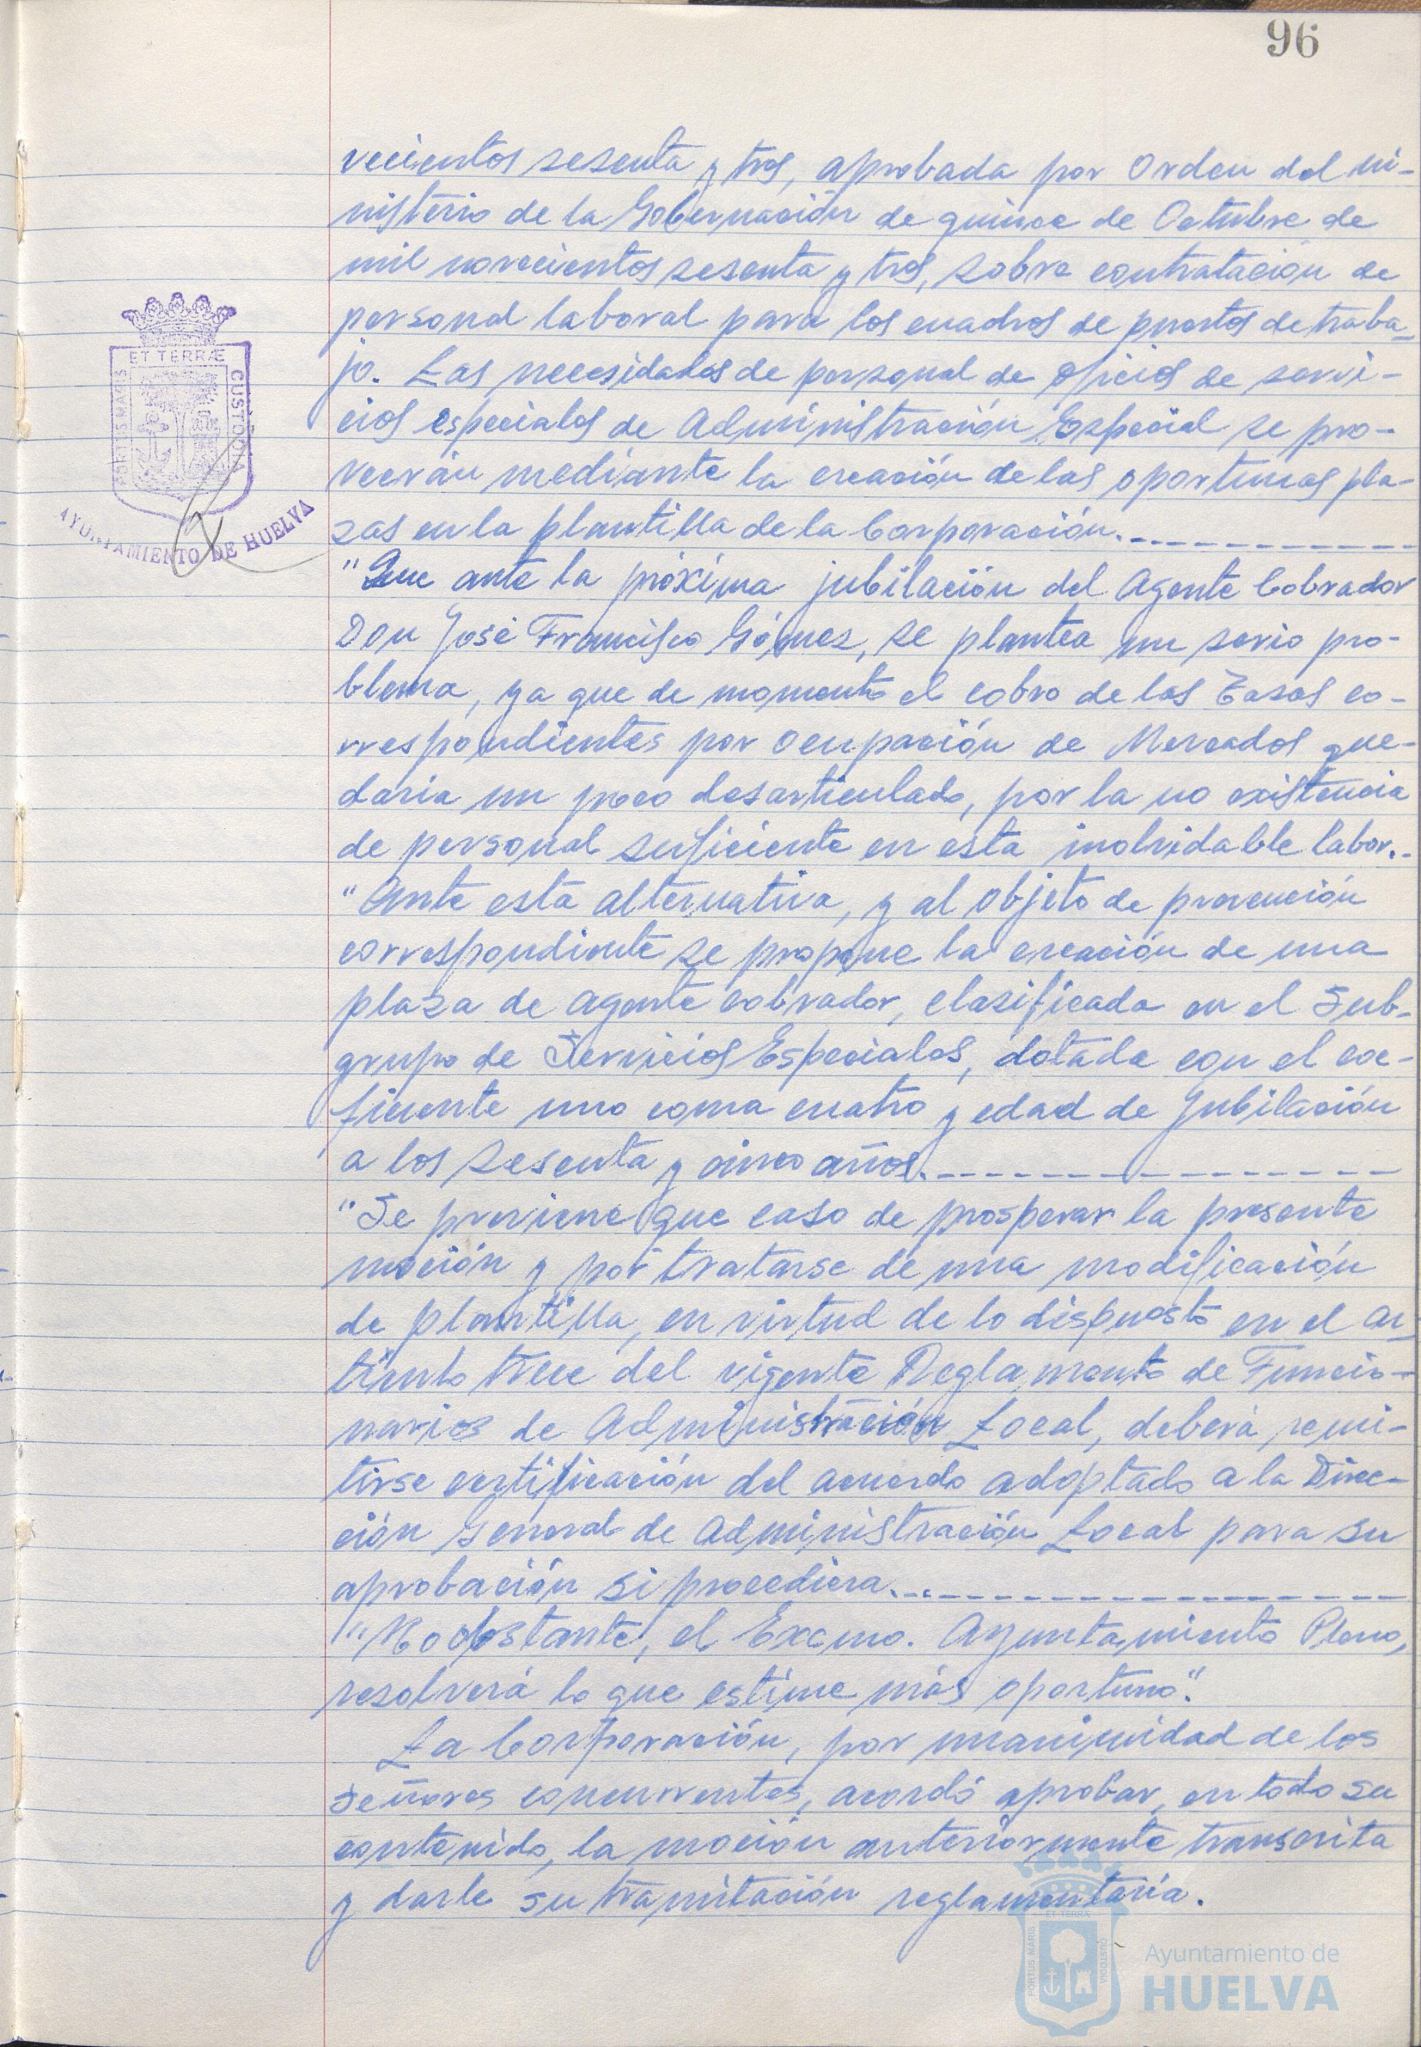 96
vecientos sesenta y tres, aprobada por Orden del mi-
nisterio de la Gobernación de quince de Octubre de
mil novecientos sesenta y tres, sobre contratación de
personal laboral para los cuadros de puestos de traba-
jo. Las necesidades de personal de oficios de servi-
cios especiales de Administración Especial se pro-
veerán mediante la creación de las oportunas pla-
zas en la plantilla de la Corporación.
"Que ante la próxima jubilación del Agente Cobrador
Don José Francisco Gómez, se plantea un serio pro-
blema, ya que de momento el cobro de las Tasas co-
rrespondientes por ocupación de Mercados que-
daria un poco desarticulado, por la no existencia
de personal suficiente en esta inolvidable labor.-
"Ante esta alternativa, y al objeto de prevención
correspondiente se propone la creación de una
plaza de agente cobrador, clasificada en el Sub-
grupo de Servicios Especiales, dotada con el coe-
ficiente uno coma cuatro y edad de Jubilación
a los sesenta y cinco años.
"Se previene que caso de prosperar la presente
moción y por tratarse de una modificación
de plantilla, en virtud de lo dispuesto en el ar-
tículo trece del vigente Reglamento de Funcio-
narios de Administración Local, deberá remi-
tirse certificación del acuerdo adoptado a la Direc-
ción General de Administración Local para su
aprobación si procediera.
"No obstante, el Excmo. Ayuntamiento Pleno,
resolverá lo que estime más oportuno".
La Corporación, por unanimidad de los
Señores concurrentes, acordó aprobar, en todo su
contenido, la moción anteriormente transcrita
y darle su tramitación reglamentaria.
PORTUS MARIS
ET TERRÆ
CUSTODIA
AYUNTAMIENTO DE HUELVA
PORTUS MARIS
ET TERRÆ
CUSTODIA
Ayuntamiento de
HUELVA